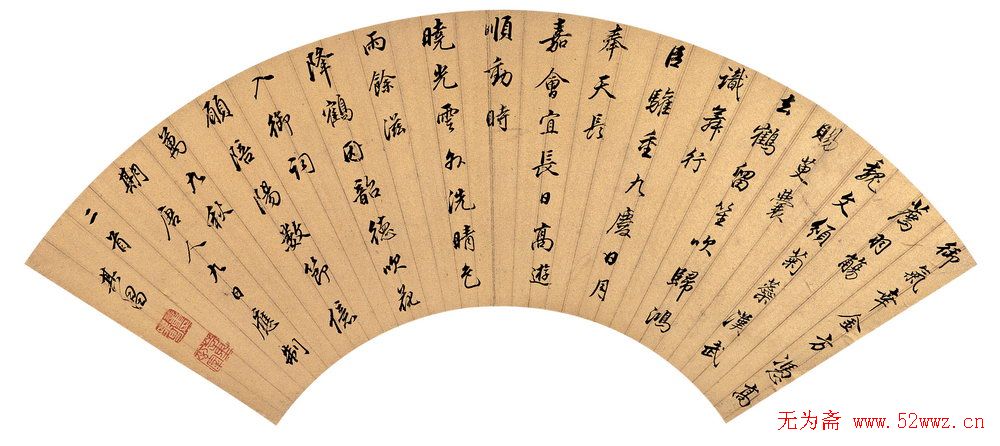 御氣幸金方憑高
薦羽觴
魏文頒菊蘂漢武
賜萸囊
去鶴留笙吹歸鴻
識舞行
臣驩重九慶日月
奉天長
嘉會宜長日高遊
順動時
曉光雲外洗晴色
雨餘滋
降鶴因韶德吹花
入御詞
願陪陽數節億
萬九秋
期唐人九日應制
二首 其昌
无为斋 www.52wwz.cn